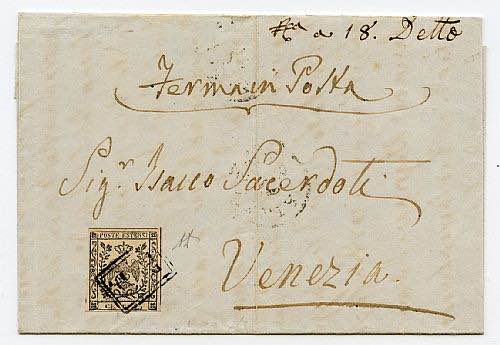 a 18. Detto
Ferma in Posta
Sig.r Isacco Sacerdoti
POSTE ESTENSI
Venezia